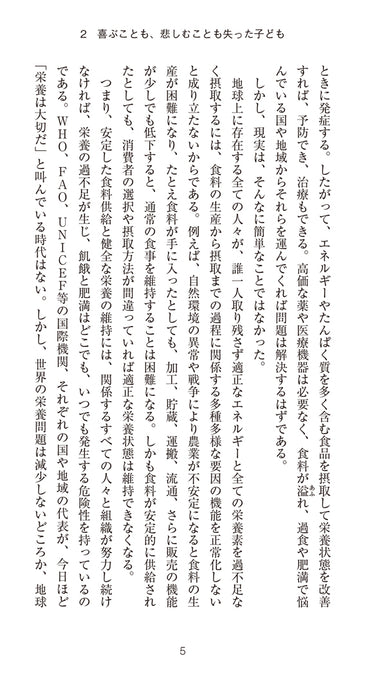 2　喜ぶことも、悲しむことも失った子ども
ときに発症する。したがって、エネルギーやたんぱく質を多く含む食品を摂取して栄養状態を改善
すれば、予防でき、治療もできる。高価な薬や医療機器は必要なく、食料が溢れ、過食や肥満で悩
んでいる国や地域からそれらを運んでくれば問題は解決するはずである。
しかし、現実は、そんなに簡単なことではなかった。
地球上に存在する全ての人々が、誰一人取り残さず適正なエネルギーと全ての栄養素を過不足な
く摂取するには、食料の生産から摂取までの過程に関係する多種多様な要因の機能を正常化しない
と成り立たないからである。例えば、自然環境の異常や戦争により農業が不安定になると食料の生
産が困難になり、たとえ食料が手に入ったとしても、加工、貯蔵、運搬、流通、さらに販売の機能
が少しでも低下すると、通常の食事を維持することは困難になる。しかも食料が安定的に供給され
たとしても、消費者の選択や摂取方法が間違っていれば適正な栄養状態は維持できなくなる。
つまり、安定した食料供給と健全な栄養の維持には、関係するすべての人々と組織が努力し続け
なければ、栄養の過不足が生じ、飢餓と肥満はどこでも、いつでも発生する危険性を持っているの
である。WHO、FAO、UNICEF等の国際機関、それぞれの国や地域の代表が、今日ほど
「栄養は大切だ」と叫んでいる時代はない。しかし、世界の栄養問題は減少しないどころか、地球
5